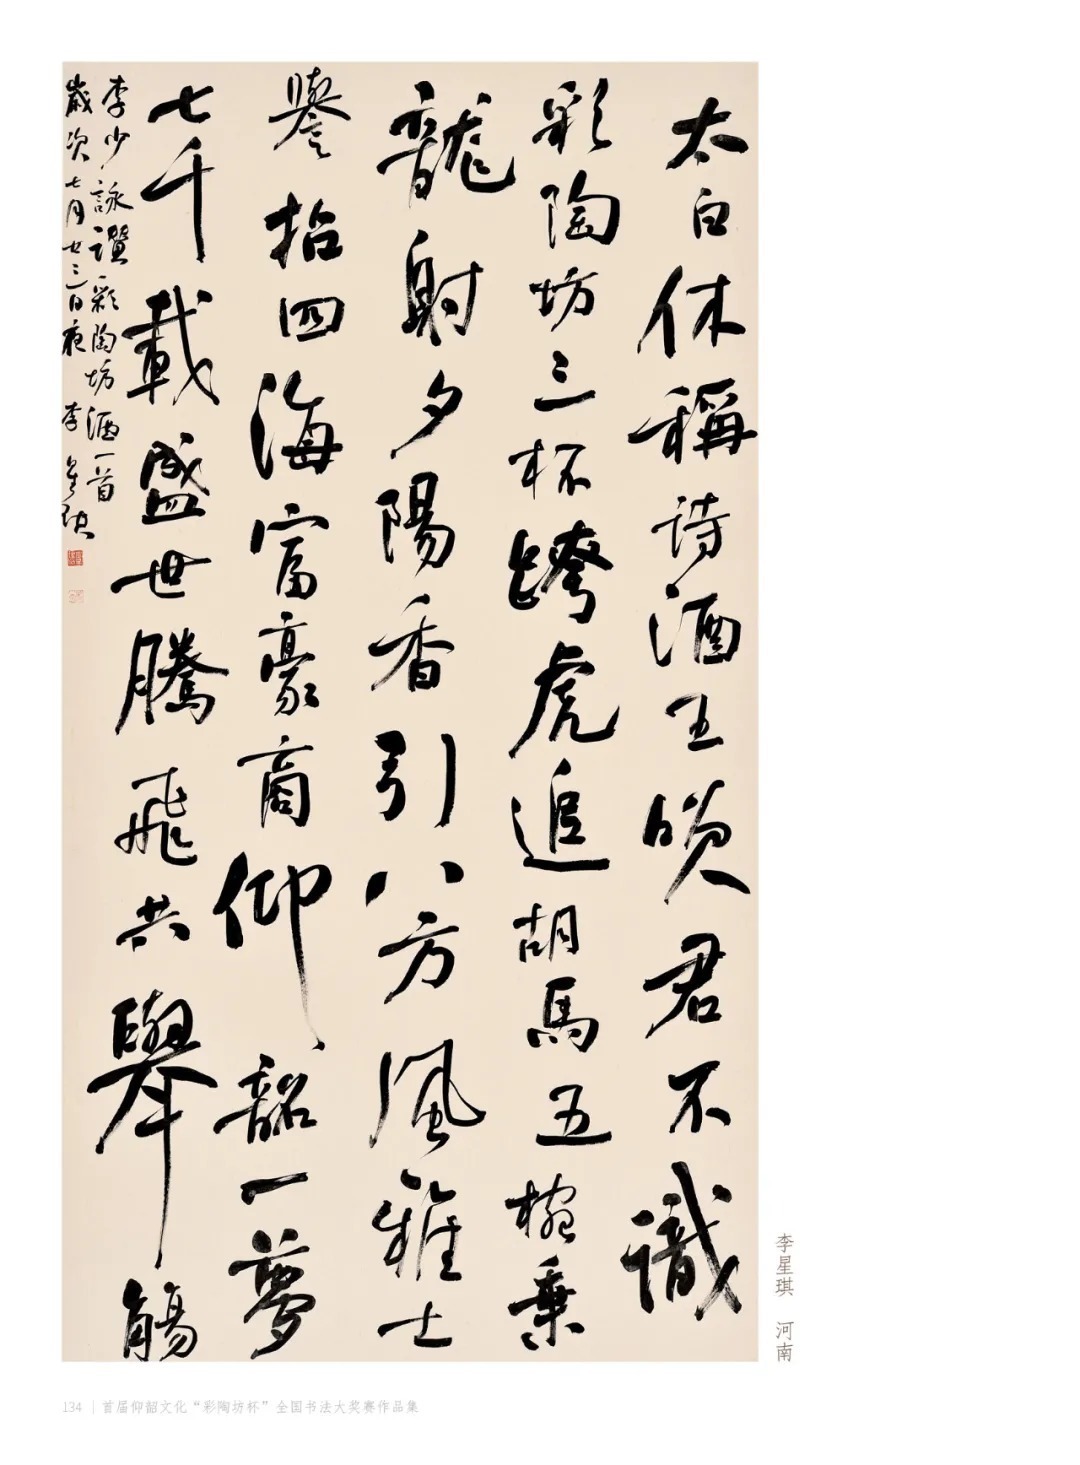 太白休稱诗酒王君不識
彩陶坊三杯跨虎追胡馬五椀乘
龍射夕陽香引八方風雅士
譽招四海富豪商仰韶一夢
七千載盛世騰飛共舉觴
李少詠讚彩陶坊酒一首
歲次七月廿三日夜李星琪
李星琪 河南
134 | 首届仰韶文化“彩陶坊杯”全国书法大奖赛作品集